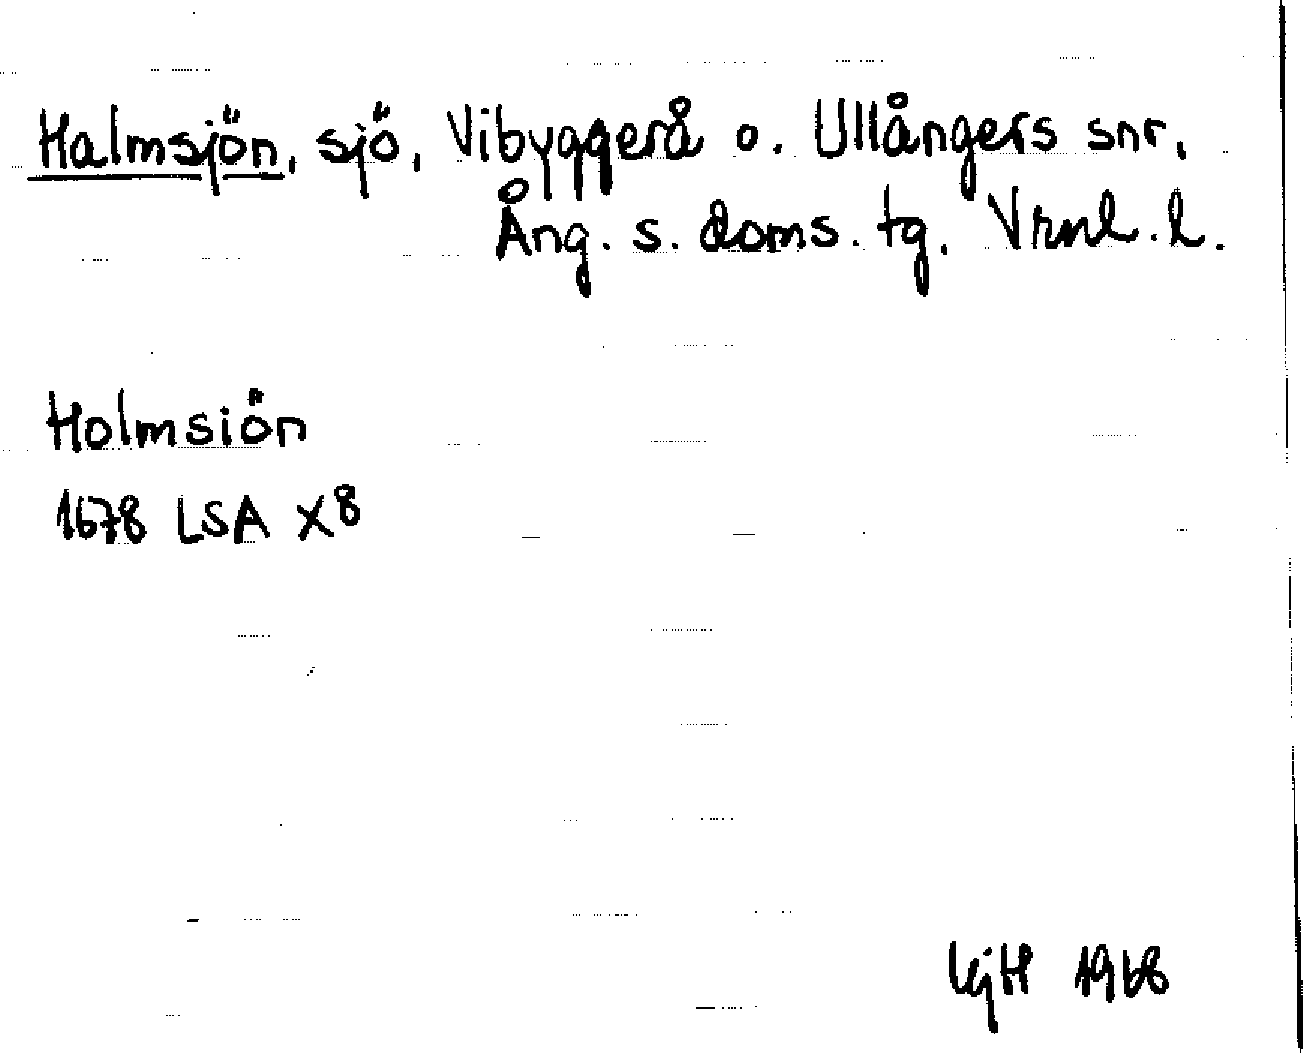 Halmsjön, sjö, Vibyggerå o. Ullångers snr,
Ång. s. doms. tg. Vrnl. l.
Holmsiön
1678 LSA X8
1968